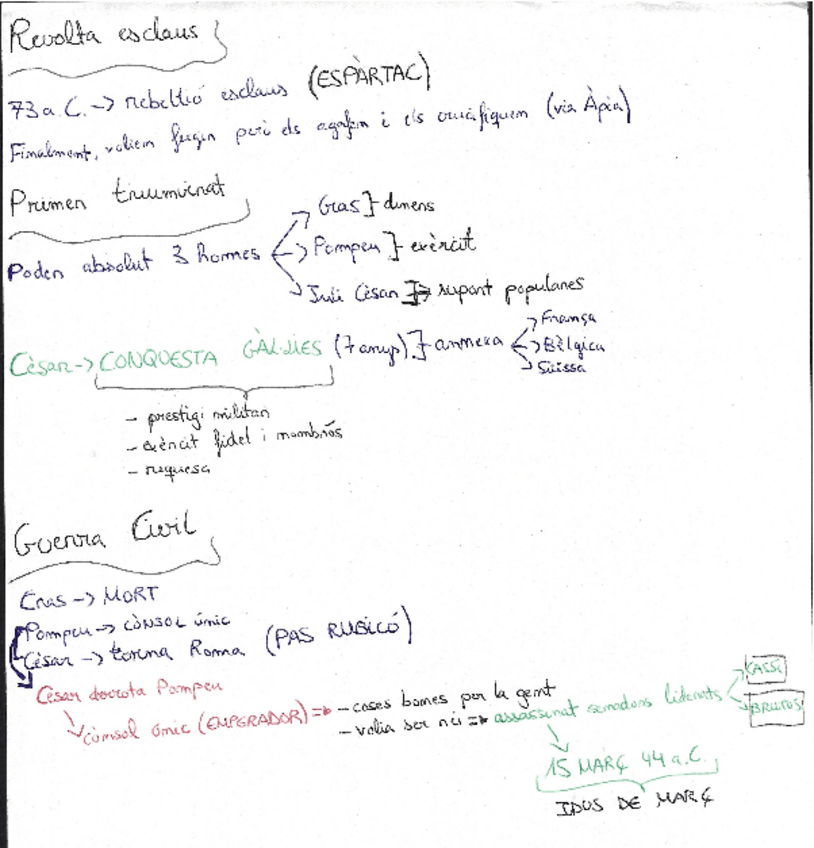 Revolta esclaus
73 a.C. -> rebel·lió esclaus (ESPÀRTAC)
Finalment, volien fugir però els agafen i els crucifiquem (via Àpia)
Primer triumvirat
Poder absolut 3 homes
Cras } - diners
Pompeu } - exèrcit
Juli Cèsar } => suport populares
Cèsar -> CONQUESTA GÀL·LIES (7 anys) } - annexa
França
Bèlgica
Suïssa
- prestigi militar
- exèrcit fidel i nombrós
- riquesa
Guerra Civil
Cras -> MORT
Pompeu -> CÒNSOL únic
Cèsar -> torna Roma (PAS RUBICÓ)
Cèsar derrota Pompeu
cònsol únic (EMPERADOR) => - coses bones per la gent
- volia ser rei => assassinat senadors liderats
CASSI
BRUTUS
15 MARÇ 44 a.C.
IDUS DE MARÇ